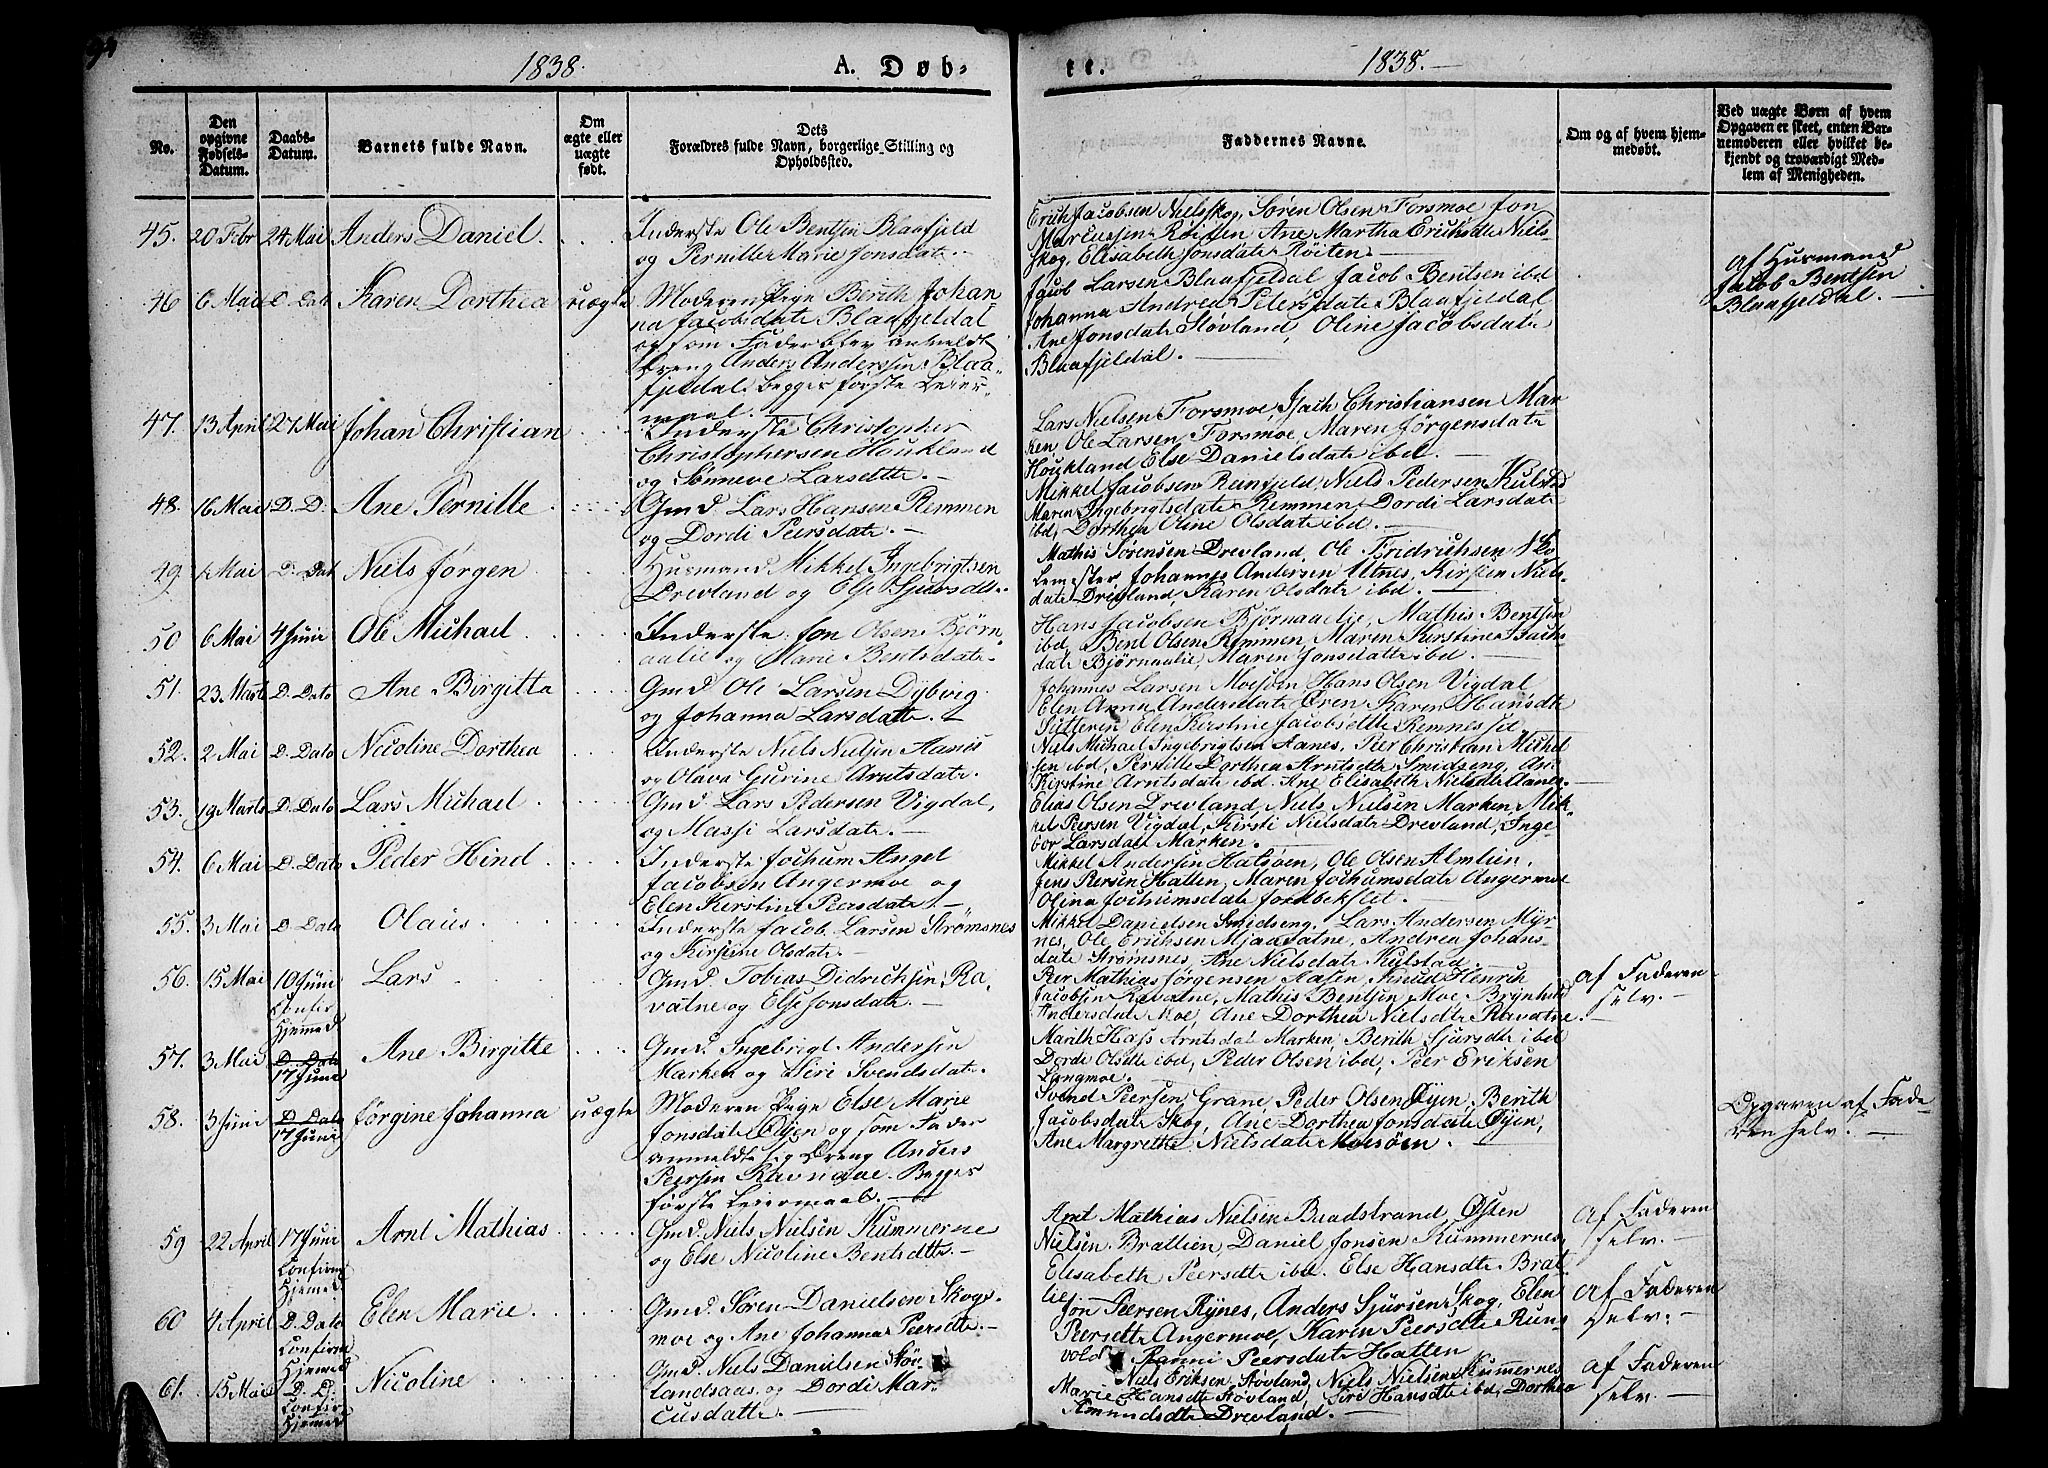 94
1838.
A. Døb-
te.
1838.
No.
Den opgivne Fødsels-Datum.
Daabs-Datum.
Barnets fulde Navn.
Om ægte eller uægte født.
Dets Forældres fulde Navn, borgerlige Stilling og Opholdssted.
Faddernes Navne.
Om og af hvem hjemmedøbt.
Ved uægte Børn af hvem Opgaven er skeet, enten Barnemoderen eller hvilket bekjendt og troværdigt Medlem af Menigheden.
45. 20 Febr 24 Mai Anders Daniel.
Inderste Ole Bentsen Blaafjeld
og Pernille Marie Jonsdatr.
Erich Jacobsen Nielsskog, Søren Olsen Forsmoe Jon
Marcussen Røiten Ane Martha Erichsdtr Niels-
skog, Elisabeth Jonsdatr Røiten.
46 6 Mai D. Dat Karen Dorthea uægte
Moderen Pige Berith Johan-
na Jacobsdatr Blaafjeldal
og som Fader blev anmeldt
Dreng Anders Anderssen Blaa-
fjeldal. begges første Leier-
maal.
Jacob Larsen Blaafjeldal Jacob Bentsen ibd
Johanna Andrea Petersdatr Blaafjeldal
Ane Jonsdatr Støvland, Oline Jacobsdatr
Blaafjeldal.
af Husmand
Jacob Bentsen
Blaafjeldal.
47. 13 April 27 Mai Johan Christian
Inderste Christopher
Christophersen Houkland
og Sønneve Larsdttr.
Lars Nielsen Forsmoe, Isach Christiansen Mar-
ken, Ole Larsen Forsmoe, Maren Jørgensdatr
Houkland Else Danielsdatr ibd.
48. 16 Mai D. D. Ane Pernille
Gmd. Lars Hansen Remmen
og Dordi Peersdatr.
Mikkel Jacobsen Reinfjeld, Niels Pedersen Kulstad
Maren Ingebrigtsdatr Remmen, Dordi Larsdatr
ibd, Dorthea Oline Olsdatr ibd.
49. 1 Mai D. Dat Niels Jørgen
Husmand Mikkel Ingebrigtsen
Drevland og Else Sjursdtr.
Mathis Sørensen Drevland, Ole Fridrichsen Sko-
lemester, Johannes Andersen Utnes, Kirsten Niels-
datr Drevland, Karen Olsdatr ibd.
50 6 Mai 4 Juni Ole Michael
Inderste Jon Olsen Bjørn-
aalie og Marie Bentsdatr.
Hans Jacobsen Bjørnaalie, Mathis Bentsen
ibd, Bent Olsen Remmen, Maren Kerstine Isach-
datr Bjørnaalie, Maren Jonsdatter ibd.
51. 23 Marts D. Dato Ane Birgitta
Gmd. Ole Larsen Dybvig
og Johanna Larsdatter.
Johannes Larsen Moesøen Hans Olsen Vigdal
Elen Anna Andersdatr Øren Karen Hansdtr
Elen Kerstine Jacobsdtr Remnessed.
52. 2 Mai D. Dato Nicoline Dorthea
Inderste Niels Nielsen Aanes
og Olava Gurine Arntsdatr.
Niels Michael Ingebrigtsen Aanes, Peer Christian Mickel
sen ibd, Pernille Dorthea Arntsdtr Smidseng, Ane
Kirstine Arntsdatr ibd. Ane Elisabeth Nielsdtr Aanes.
53. 19 Marts D. Dato Lars Michael
Gmd Lars Pedersen Vigdal,
og Massi Larsdatr.
Elias Olsen Drevland, Niels Nielsen Marken, Mik-
kel Peersen Vigdal, Kirsti Nielsdatr Drevland, Inge-
bor Larsdatr Marken.
54. 6 Mai D. Dato Peder Hind
Inderste Jochum Angel
Jacobsen Angermoe og
Elen Kerstine Peersdatr.
Mikkel Andersen Hatsøen, Ole Olsen Almlien,
Jens Peersen Hatten, Maren Jochumsdatr Angermoe
Olina Jochumsdatr Jordbekslet.
55. 3 Mai D. Dato Olaus.
Inderste Jacob Larsen Strømsnes
og Kirstine Olsdatr.
Mikkel Danielsen Smidseng, Lars Andersen Myr-
nes, Ole Erichsen Mjaavatne, Andrea Johans-
datr Strømsnes, Ane Nielsdatr Kulstad.
56. 15 Mai 10 Juni Confir Hjemmed Lars
Gmd. Tobias Didricksen Ra-
vatne og Else Jonsdatr.
Peer Mathias Jørgensen Aasen, Knud Henrik
Jacobsen Ravatne, Mathis Bentsen Moe, Brynhild
Andersdatr Moe, Ane Dorthea Nielsdtr Ravatne.
af Faderen
selv.
57. 3 Mai D. Dato 17 Juni Ane Birgitte
Gmd. Ingebrigt Andersen
Marken og Siri Svendsdatr.
Marith Hass Arntsdatr Marken, Berith Sjursdtr ibd
Dordi Olsdtr ibd, Peder Olsen ibd, Peer Eriksen
Langmoe.
58. 3 Juni D. Dato 17 Juni Jørgine Johanna uægte
Moderen Pige Else Marie
Jonsdatr Øyen og som Fader
anmeldte sig Dreng Anders
Peersen Ravnaae. Begges
første Leiermaal.
Svend Peersen Grane, Peder Olsen Øyen, Berith
Jacobsdatr Skog, Ane Dorthea Jonsdatr Øyen,
Ane Margrethe Nielsdatr Moesøen.
Opgaven af Fade-
ren selv.
59 22 April 17 Juni Confirm Hjemmed Arnt Mathias
Gmd. Niels Nielsen Kummerne
og Else Nicoline Bentsdtr.
Arnt Mathias Nielsen Baadstrand, Østen
Nielsen Brattlien, Daniel Jonsen Kummernes,
Elisabeth Peersdtr ibd. Else Hansdtr Brat-
lie.
Af Faderen
selv.
60 4 April D. Dato Confirm Hjemmed Elen Marie
Gmd. Søren Danielsen Skogs-
moe og Ane Johanna Peersdtr.
Jon Peersen Rynes, Anders Sjursen Skog, Elen
Peersdtr Angermoe, Karen Peersdtr Rune-
vold, Ranni Peersdatr Hatten
Af Faderen
selv.
61. 15 Mai D. D. Confir Hjemmed Nicoline
Gmd. Niels Danielsen Støv-
landsaas, og Dordi Mar-
cusdatter.
Niels Eriksen Støvland, Niels Nielsen Kummernes
Marie Hansdtr Støvland, Siri Hansdtr ibd, Dorthea
Amundsdtr Drevland.
af Faderen
selv.